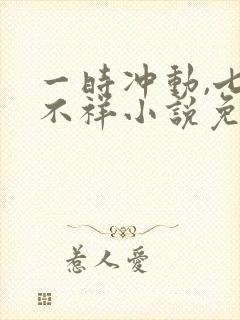 一時冲動,七
不祥小說免
惹人愛